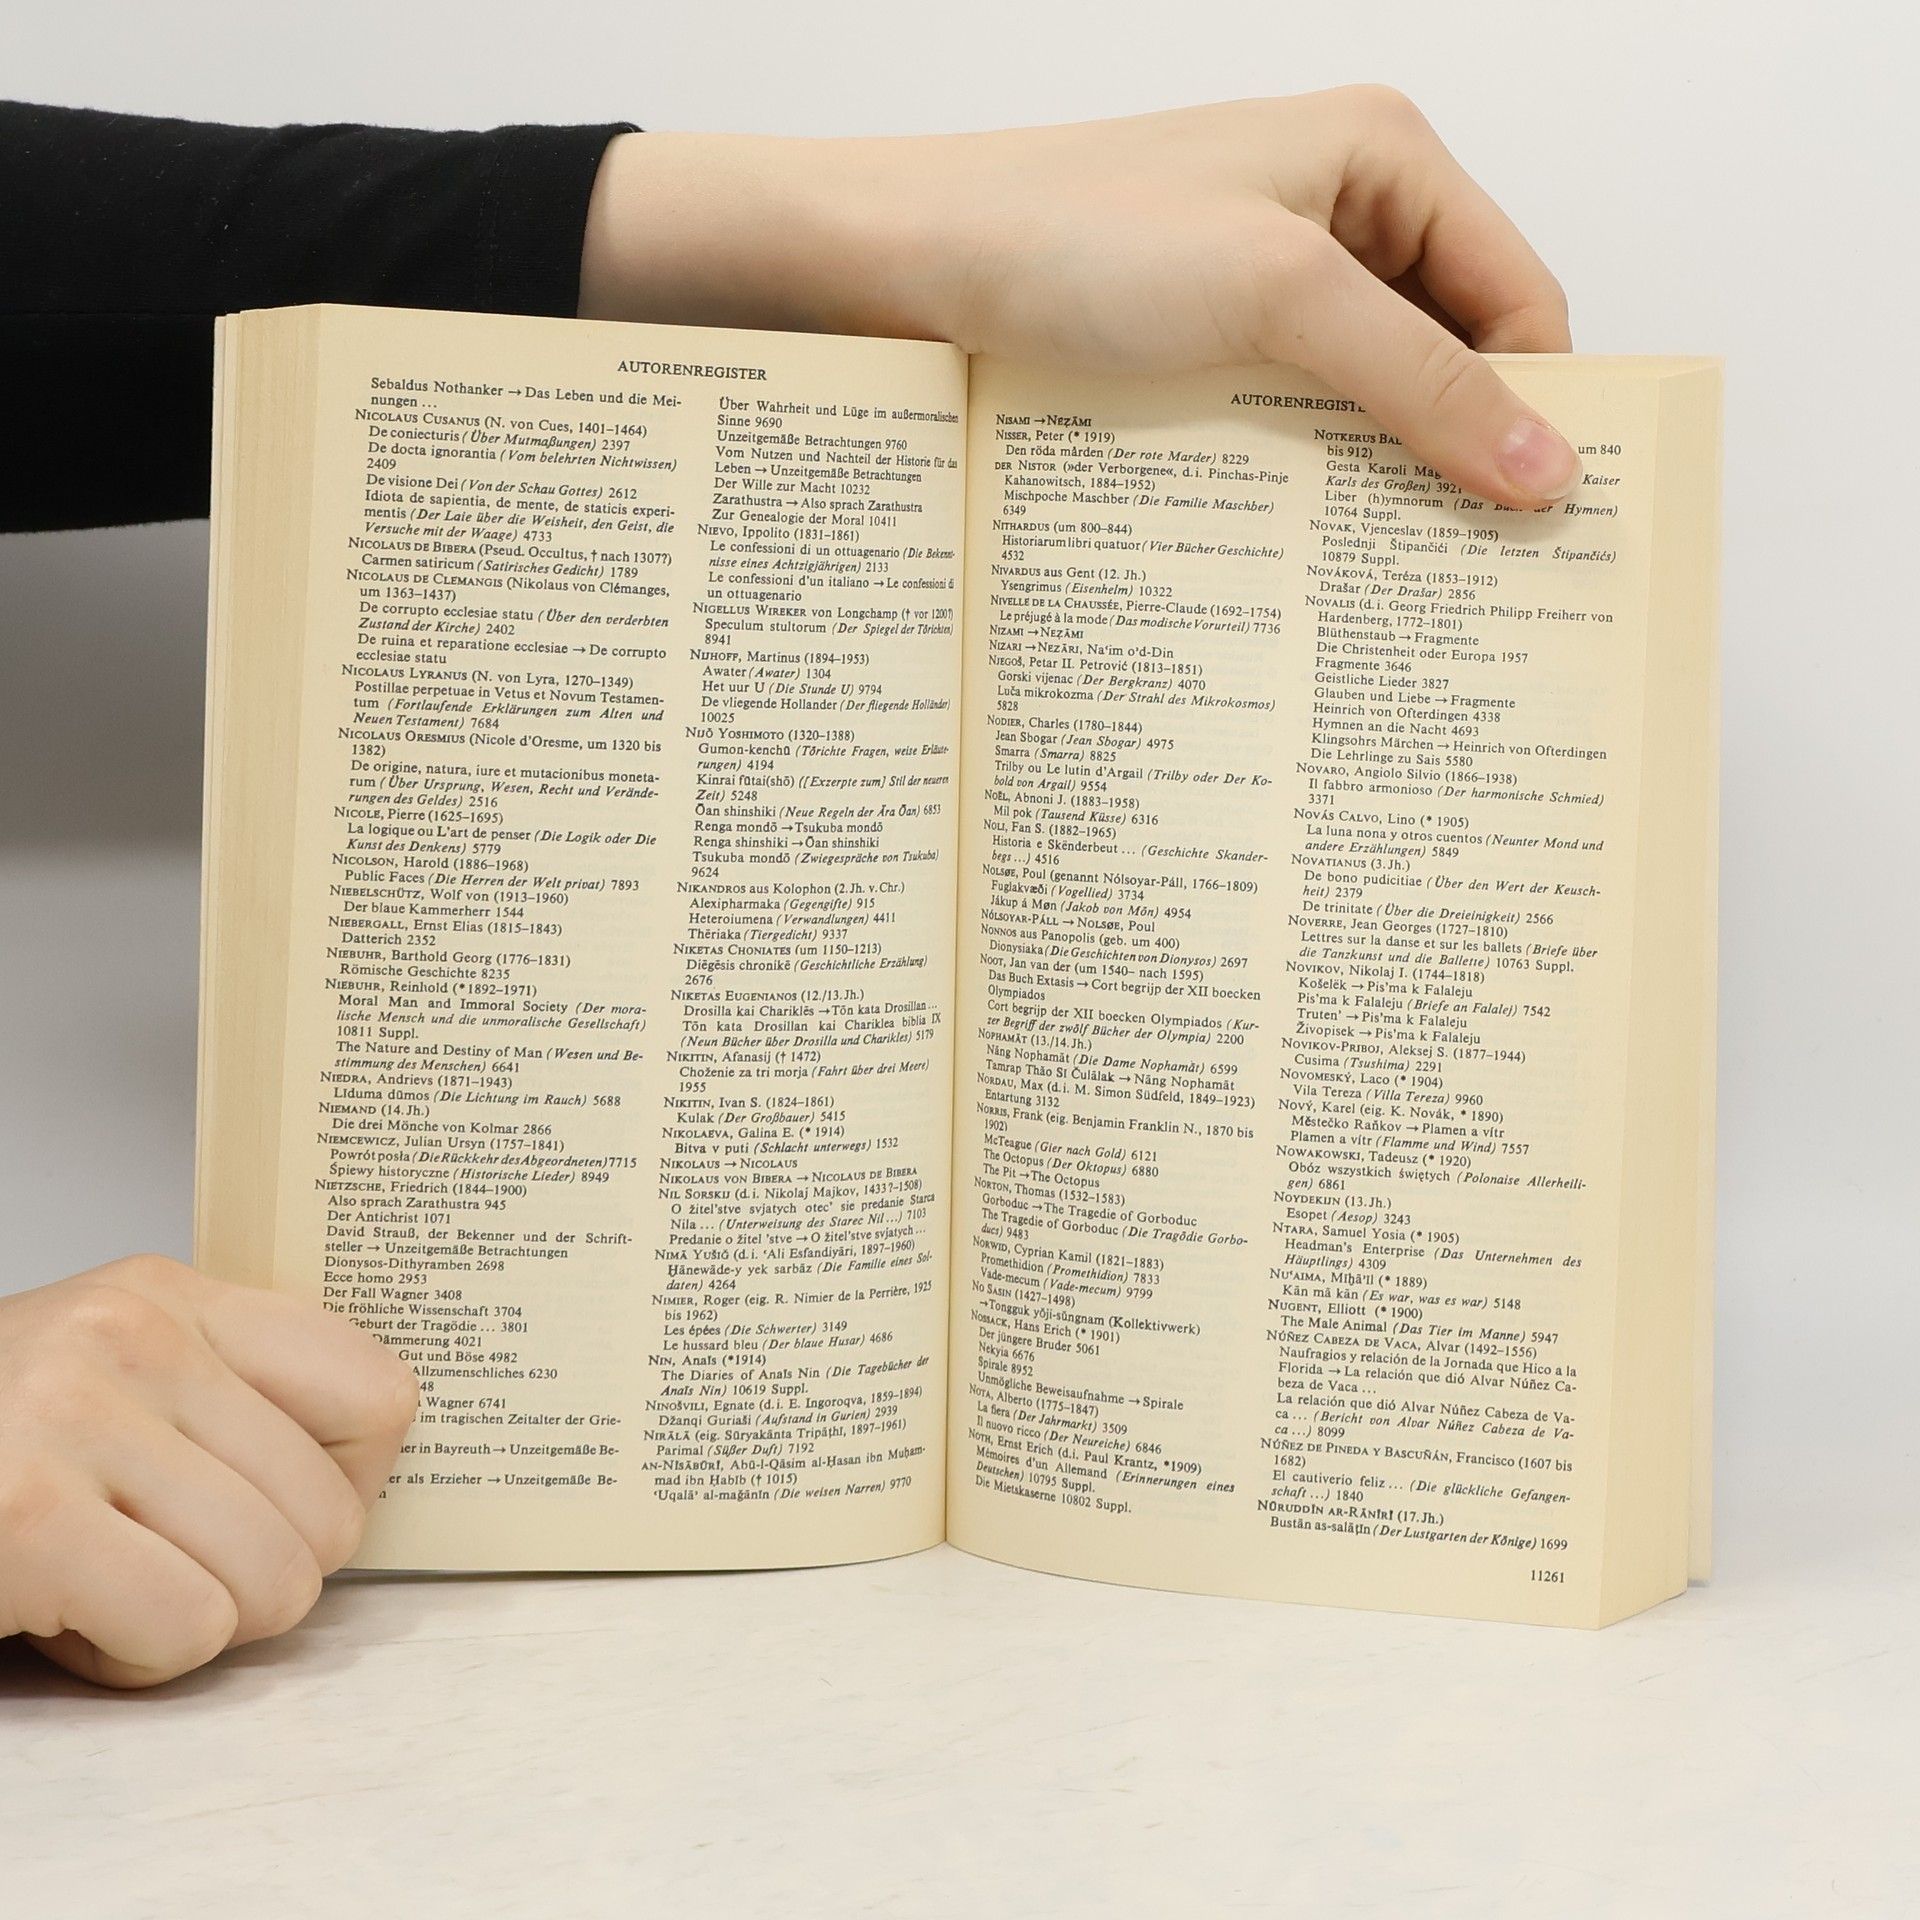 AUTORENREGISTER
Sebaldus Nothanker → Das Leben und die Mei-
nungen ...
NICOLAUS CUSANUS (N. von Cues, 1401–1464)
De coniecturis (Über Mutmaßungen) 2397
De docta ignorantia (Vom belehrten Nichtwissen)
2409
De visione Dei (Von der Schau Gottes) 2612
Idiota de sapientia, de mente, de staticis experi-
mentis (Der Laie über die Weisheit, den Geist, die
Versuche mit der Waage) 4733
NICOLAUS DE BIBERA (Pseud. Occultus, † nach 1307?)
Carmen satiricum (Satirisches Gedicht) 1789
NICOLAUS DE CLEMANGIS (Nikolaus von Clémanges,
um 1363–1437)
De corrupto ecclesiae statu (Über den verderbten
Zustand der Kirche) 2402
De ruina et reparatione ecclesiae → De corrupto
ecclesiae statu
NICOLAUS LYRANUS (N. von Lyra, 1270–1349)
Postillae perpetuae in Vetus et Novum Testamen-
tum (Fortlaufende Erklärungen zum Alten und
Neuen Testament) 7684
NICOLAUS ORESMIUS (Nicole d'Oresme, um 1320 bis
1382)
De origine, natura, iure et mutacionibus moneta-
rum (Über Ursprung, Wesen, Recht und Verände-
rungen des Geldes) 2516
NICOLE, Pierre (1625–1695)
La logique ou L'art de penser (Die Logik oder Die
Kunst des Denkens) 5779
NICOLSON, Harold (1886–1968)
Public Faces (Die Herren der Welt privat) 7893
NIEBELSCHÜTZ, Wolf von (1913–1960)
Der blaue Kammerherr 1544
NIEBERGALL, Ernst Elias (1815–1843)
Datterich 2352
NIEBUHR, Barthold Georg (1776–1831)
Römische Geschichte 8235
NIEBUHR, Reinhold (*1892–1971)
Moral Man and Immoral Society (Der mora-
lische Mensch und die unmoralische Gesellschaft)
10811 Suppl.
The Nature and Destiny of Man (Wesen und Be-
stimmung des Menschen) 6641
NIEDRA, Andrievs (1871–1943)
Līduma dūmos (Die Lichtung im Rauch) 5688
NIEMAND (14. Jh.)
Die drei Mönche von Kolmar 2866
NIEMCEWICZ, Julian Ursyn (1757–1841)
Powrót posła (Die Rückkehr des Abgeordneten) 7715
Śpiewy historyczne (Historische Lieder) 8949
NIETZSCHE, Friedrich (1844–1900)
Also sprach Zarathustra 945
Der Antichrist 1071
David Strauß, der Bekenner und der Schrift-
steller → Unzeitgemäße Betrachtungen
Dionysos-Dithyramben 2698
Ecce homo 2953
Der Fall Wagner 3408
Die fröhliche Wissenschaft 3704
Geburt der Tragödie ... 3801
Dämmerung 4021
Gut und Böse 4982
Allzumenschliches 6230
48
Wagner 6741
im tragischen Zeitalter der Grie-
er in Bayreuth → Unzeitgemäße Be-
er als Erzieher → Unzeitgemäße Be-
n
Über Wahrheit und Lüge im außermoralischen
Sinne 9690
Unzeitgemäße Betrachtungen 9760
Vom Nutzen und Nachteil der Historie für das
Leben → Unzeitgemäße Betrachtungen
Der Wille zur Macht 10232
Zarathustra → Also sprach Zarathustra
Zur Genealogie der Moral 10411
NIEVO, Ippolito (1831–1861)
Le confessioni di un ottuagenario (Die Bekennt-
nisse eines Achtzigjährigen) 2133
Le confessioni d'un italiano → Le confessioni di
un ottuagenario
NIGELLUS WIREKER von Longchamp († vor 1200?)
Speculum stultorum (Der Spiegel der Törichten)
8941
NIJHOFF, Martinus (1894–1953)
Awater (Awater) 1304
Het uur U (Die Stunde U) 9794
De vliegende Hollander (Der fliegende Holländer)
10025
NIJŌ YOSHIMOTO (1320–1388)
Gumon-kenchū (Törichte Fragen, weise Erläute-
rungen) 4194
Kinrai fūtai(shō) ([Exzerpte zum] Stil der neueren
Zeit) 5248
Ōan shinshiki (Neue Regeln der Ära Ōan) 6853
Renga mondō → Tsukuba mondō
Renga shinshiki → Ōan shinshiki
Tsukuba mondō (Zwiegespräche von Tsukuba)
9624
NIKANDROS aus Kolophon (2. Jh. v. Chr.)
Alexipharmaka (Gegengifte) 915
Heteroiumena (Verwandlungen) 4411
Thēriaka (Tiergedicht) 9337
NIKETAS CHONIATES (um 1150–1213)
Diēgēsis chronikē (Geschichtliche Erzählung)
2676
NIKETAS EUGENIANOS (12./13. Jh.)
Drosilla kai Chariklēs → Tōn kata Drosillan ...
Tōn kata Drosillan kai Chariklea biblia IX
(Neun Bücher über Drosilla und Charikles) 5179
NIKITIN, Afanasij († 1472)
Choženie za tri morja (Fahrt über drei Meere)
1955
NIKITIN, Ivan S. (1824–1861)
Kulak (Der Großbauer) 5415
NIKOLAEVA, Galina E. (* 1914)
Bitva v puti (Schlacht unterwegs) 1532
NIKOLAUS → NICOLAUS
NIKOLAUS VON BIBERA → NICOLAUS DE BIBERA
NIL SORSKIJ (d. i. Nikolaj Majkov, 1433?–1508)
O žitel'stve svjatych otec' sie predanie Starca
Nila ... (Unterweisung des Starec Nil ...) 7103
Predanie o žitel'stve → O žitel'stve svjatych ...
NIMĀ YUŠIǦ (d. i. ʿAli Esfandiyāri, 1897–1960)
Ḫānewāde-y yek sarbāz (Die Familie eines Sol-
daten) 4264
NIMIER, Roger (eig. R. Nimier de la Perrière, 1925
bis 1962)
Les épées (Die Schwerter) 3149
Le hussard bleu (Der blaue Husar) 4686
NIN, Anaïs (*1914)
The Diaries of Anaïs Nin (Die Tagebücher der
Anaïs Nin) 10619 Suppl.
NINOŠVILI, Egnate (d. i. E. Ingoroqva, 1859–1894)
Džanqi Guriaši (Aufstand in Gurien) 2939
NIRĀLĀ (eig. Sūryakānta Tripāṭhī, 1897–1961)
Parimal (Süßer Duft) 7192
AN-NĪSĀBŪRĪ, Abū-l-Qāsim al-Ḥasan ibn Muḥam-
mad ibn Ḥabīb († 1015)
ʿUqalāʾ al-maǧānīn (Die weisen Narren) 9770
AUTORENREGISTE
NISAMI → NEẒĀMI
NISSER, Peter (* 1919)
Den röda mården (Der rote Marder) 8229
DER NISTOR (»der Verborgene«, d. i. Pinchas-Pinje
Kahanowitsch, 1884–1952)
Mischpoche Maschber (Die Familie Maschber)
6349
NITHARDUS (um 800–844)
Historiarum libri quatuor (Vier Bücher Geschichte)
4532
NIVARDUS aus Gent (12. Jh.)
Ysengrimus (Eisenhelm) 10322
NIVELLE DE LA CHAUSSÉE, Pierre-Claude (1692–1754)
Le préjugé à la mode (Das modische Vorurteil) 7736
NIZAMI → NEẒĀMI
NIZARI → NEZĀRI, Naʿim o'd-Din
NJEGOŠ, Petar II. Petrović (1813–1851)
Gorski vijenac (Der Bergkranz) 4070
Luča mikrokozma (Der Strahl des Mikrokosmos)
5828
NODIER, Charles (1780–1844)
Jean Sbogar (Jean Sbogar) 4975
Smarra (Smarra) 8825
Trilby ou Le lutin d'Argail (Trilby oder Der Ko-
bold von Argail) 9554
NOËL, Abnoni J. (1883–1958)
Mil pok (Tausend Küsse) 6316
NOLI, Fan S. (1882–1965)
Historia e Skënderbeut ... (Geschichte Skander-
begs ...) 4516
NOLSØE, Poul (genannt Nólsoyar-Páll, 1766–1809)
Fuglakvæði (Vogellied) 3734
Jákup á Møn (Jakob von Mön) 4954
NÓLSOYAR-PÁLL → NOLSØE, Poul
NONNOS aus Panopolis (geb. um 400)
Dionysiaka (Die Geschichten von Dionysos) 2697
NOOT, Jan van der (um 1540– nach 1595)
Das Buch Extasis → Cort begrijp der XII boecken
Olympiados
Cort begrijp der XII boecken Olympiados (Kur-
zer Begriff der zwölf Bücher der Olympia) 2200
NOPHAMĀT (13./14. Jh.)
Nāng Nophamāt (Die Dame Nophamāt) 6599
Tamrap Thāo SI Čulālak → Nāng Nophamāt
NORDAU, Max (d. i. M. Simon Südfeld, 1849–1923)
Entartung 3132
NORRIS, Frank (eig. Benjamin Franklin N., 1870 bis
1902)
McTeague (Gier nach Gold) 6121
The Octopus (Der Oktopus) 6880
The Pit → The Octopus
NORTON, Thomas (1532–1583)
Gorboduc → The Tragedie of Gorboduc
The Tragedie of Gorboduc (Die Tragödie Gorbo-
ducs) 9483
NORWID, Cyprian Kamil (1821–1883)
Promethidion (Promethidion) 7833
Vade-mecum (Vade-mecum) 9799
NO SASIN (1427–1498)
→ Tongguk yŏji-sŭngnam (Kollektivwerk)
NOSSACK, Hans Erich (* 1901)
Der jüngere Bruder 5061
Nekyia 6676
Spirale 8952
Unmögliche Beweisaufnahme → Spirale
NOTA, Alberto (1775–1847)
La fiera (Der Jahrmarkt) 3509
Il nuovo ricco (Der Neureiche) 6846
NOTH, Ernst Erich (d. i. Paul Krantz, *1909)
Mémoires d'un Allemand (Erinnerungen eines
Deutschen) 10795 Suppl.
Die Mietskaserne 10802 Suppl.
NOTKERUS BAL um 840
bis 912)
Gesta Karoli Mag Kaiser
Karls des Großen) 3921
Liber (h)ymnorum (Das Buch der Hymnen)
10764 Suppl.
NOVAK, Vjenceslav (1859–1905)
Poslednji Štipančići (Die letzten Štipančićs)
10879 Suppl.
NOVÁKOVÁ, Teréza (1853–1912)
Drašar (Der Drašar) 2856
NOVALIS (d. i. Georg Friedrich Philipp Freiherr von
Hardenberg, 1772–1801)
Blüthenstaub → Fragmente
Die Christenheit oder Europa 1957
Fragmente 3646
Geistliche Lieder 3827
Glauben und Liebe → Fragmente
Heinrich von Ofterdingen 4338
Hymnen an die Nacht 4693
Klingsohrs Märchen → Heinrich von Ofterdingen
Die Lehrlinge zu Sais 5580
NOVARO, Angiolo Silvio (1866–1938)
Il fabbro armonioso (Der harmonische Schmied)
3371
NOVÁS CALVO, Lino (* 1905)
La luna nona y otros cuentos (Neunter Mond und
andere Erzählungen) 5849
NOVATIANUS (3. Jh.)
De bono pudicitiae (Über den Wert der Keusch-
heit) 2379
De trinitate (Über die Dreieinigkeit) 2566
NOVERRE, Jean Georges (1727–1810)
Lettres sur la danse et sur les ballets (Briefe über
die Tanzkunst und die Ballette) 10763 Suppl.
NOVIKOV, Nikolaj I. (1744–1818)
Košelëk → Pis'ma k Falaleju
Pis'ma k Falaleju (Briefe an Falalej) 7542
Truten' → Pis'ma k Falaleju
Živopisek → Pis'ma k Falaleju
NOVIKOV-PRIBOJ, Aleksej S. (1877–1944)
Cusima (Tsushima) 2291
NOVOMESKÝ, Laco (* 1904)
Vila Tereza (Villa Tereza) 9960
NOVÝ, Karel (eig. K. Novák, * 1890)
Městečko Raňkov → Plamen a vítr
Plamen a vítr (Flamme und Wind) 7557
NOWAKOWSKI, Tadeusz (* 1920)
Obóz wszystkich świętych (Polonaise Allerheili-
gen) 6861
NOYDEKIJN (13. Jh.)
Esopet (Aesop) 3243
NTARA, Samuel Yosia (* 1905)
Headman's Enterprise (Das Unternehmen des
Häuptlings) 4309
NUʿAIMA, Mīḫāʾīl (* 1889)
Kān mā kān (Es war, was es war) 5148
NUGENT, Elliott (* 1900)
The Male Animal (Das Tier im Manne) 5947
NÚÑEZ CABEZA DE VACA, Alvar (1492–1556)
Naufragios y relación de la Jornada que Hico a la
Florida → La relación que dió Alvar Núñez Ca-
beza de Vaca ...
La relación que dió Alvar Núñez Cabeza de Va-
ca ... (Bericht von Alvar Núñez Cabeza de Va-
ca ...) 8099
NÚÑEZ DE PINEDA Y BASCUÑÁN, Francisco (1607 bis
1682)
El cautiverio feliz ... (Die glückliche Gefangen-
schaft ...) 1840
NŪRUDDĪN AR-RĀNĪRĪ (17. Jh.)
Bustān as-salāṭīn (Der Lustgarten der Könige) 1699
11261